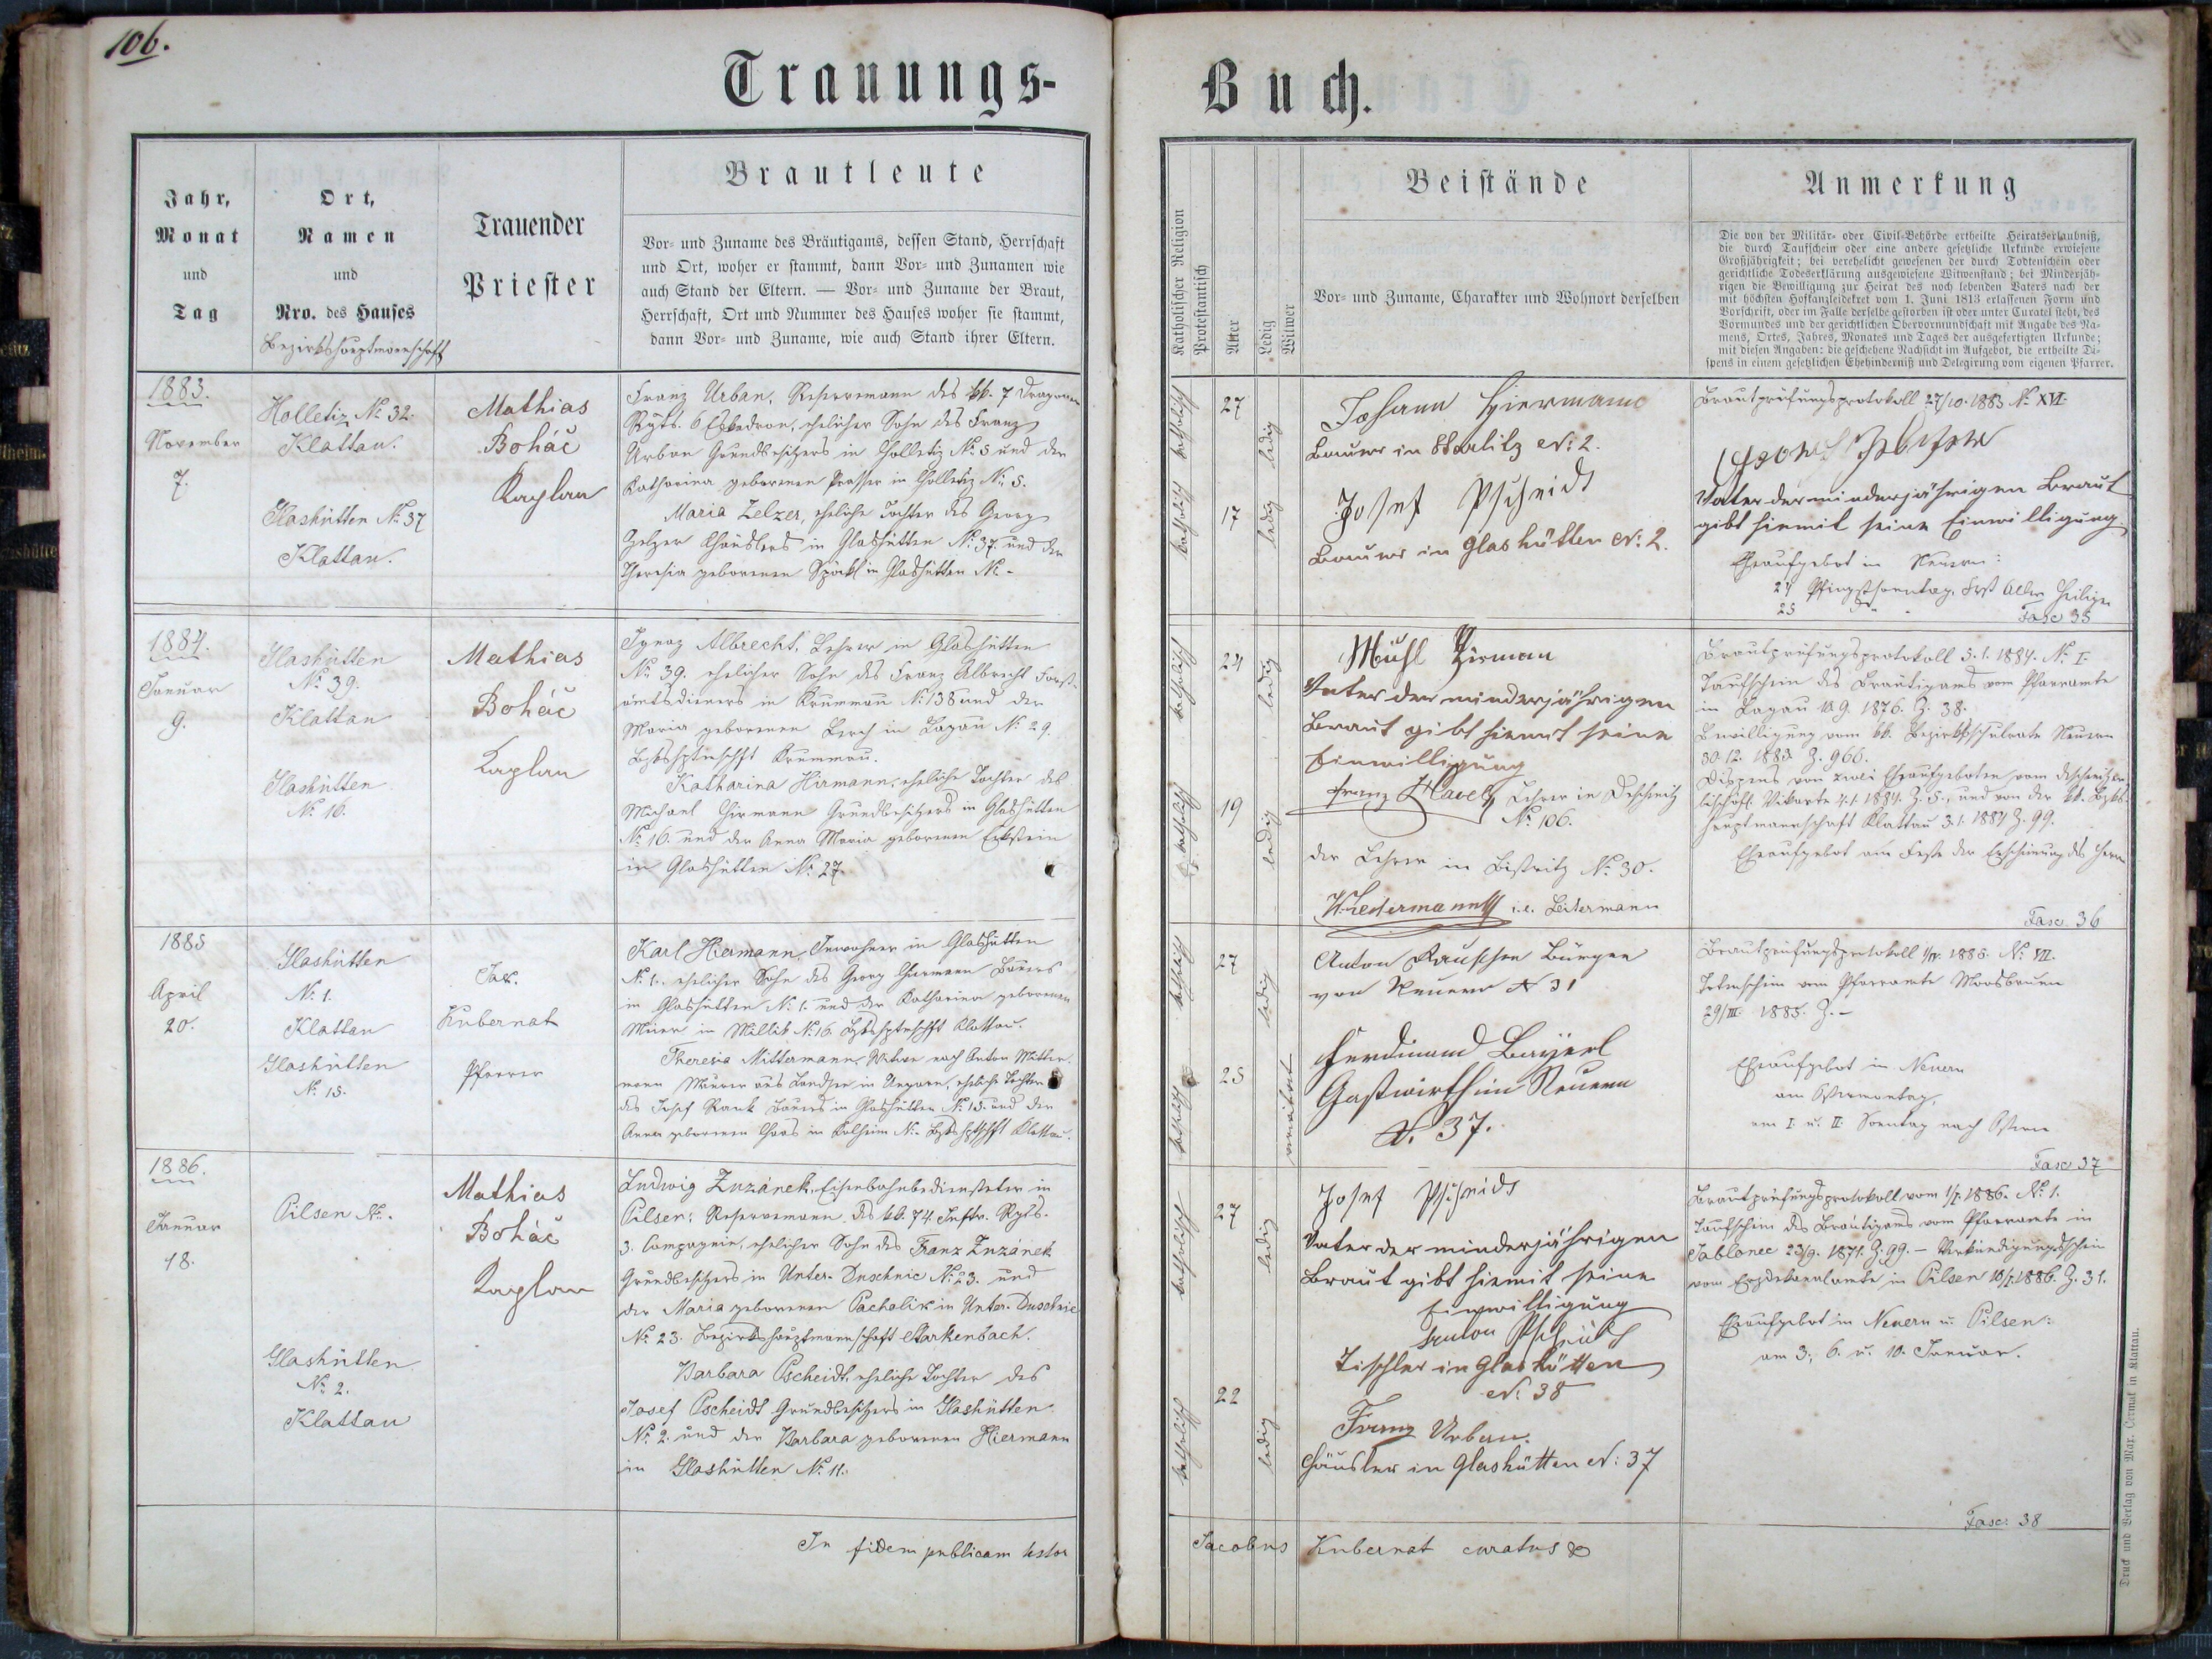 106.
Trauungs-
Jahr,
Monat
und
Tag
Ort,
Namen
und
Nro. des Hauses
Bezirkshauptmannschaft
Trauender
Priester
Brautleute
Vor- und Zuname des Bräutigams, dessen Stand, Herrschaft
und Ort, woher er stammt, dann Vor- und Zunamen wie
auch Stand der Eltern. — Vor- und Zuname der Braut,
Herrschaft, Ort und Nummer des Hauses woher sie stammt,
dann Vor- und Zuname, wie auch Stand ihrer Eltern.
1883.
November
7.
Holletiz No 32.
Klattau.
Glashütten No 37
Klattau.
Mathias
Boháč
Kaplan
Franz Urban, Reservemann des kk. 7 Dragoner
Rgts. 6 Eskadron, ehelicher Sohn des Franz
Urban Grundbesitzers in Holletiz No 5 und der
Katharina geborenen in Holletiz No. 5.
Maria Zelzer, eheliche Tochter des Georg
Zelzer Häuslers in Glashütten No 37. und der
Theresia geborenen Späckl in Glashütten No -
1884.
Januar
9.
Glashütten
No 39.
Klattau
Glashütten
No 16.
Mathias
Boháč
Kaplan
Ignaz Albrecht, Lehrer in Glashütten
No 39. ehelicher Sohn des Franz Albrecht Forst-
amtsdieners in Krummau No 138 und der
Maria geborenen Lerch in Lagau No 29.
Bzkshptmschft Krummau.
Katharina Hirmann, eheliche Tochter des
Michael Hirmann Grundbesitzers in Glashütten
No 16. und der Anna Maria geborenen Eckstein
in Glashütten No 27.
1885
April
20.
Glashütten
No 1.
Klattau
Glashütten
No 15.
Jak.
Kubernat
Pfarrer
Karl Hiermann, Inwohner in Glashütten
No 1. ehelicher Sohn des Georg Hiermann Bauers
in Glashütten No 1. und der Katharina geborenen
Meier in Millik No 16. Bzkshptmschft Klattau.
Theresia Mittermann, Witwe nach Anton Mitter-
mann Maurer aus Landsee in Ungarn, eheliche Tochter
des Josef Rank Bauers in Glashütten No 15. und der
Anna geborenen Haas in Kolheim No - Bzkshptschft Klattau.
1886.
Januar
18.
Pilsen No -
Glashütten
No 2.
Klattau
Mathias
Boháč
Kaplan
Ludwig Zuzánek, Eisenbahnbediensteter in
Pilsen; Reservemann des kk. 74. Inftr. Rgts.
3. Compagnie, ehelicher Sohn des Franz Zuzánek
Grundbesitzers in Unter-Duschnic No 23. und
der Maria geborenen Pachalik in Unter-Duschnic
No 23. Bezirkshauptmannschaft Starkenbach.
Barbara Pscheidt, eheliche Tochter des
Josef Pscheidt Grundbesitzers in Glashütten
No 2. und der Barbara geborenen Hiermann
in Glashütten No 11.
In fidem publicam testor
Buch.
Katholischer Religion
Protestantisch
Alter
Ledig
Witwer
Beistände
Vor- und Zuname, Charakter und Wohnort derselben
Anmerkung
Die von der Militär- oder Civil-Behörde ertheilte Heiratserlaubniß,
die durch Taufschein oder eine andere gesetzliche Urkunde erwiesene
Großjährigkeit; bei verehelicht gewesenen der durch Todtenschein oder
gerichtliche Todeserklärung ausgewiesene Witwenstand; bei Minderjäh-
rigen die Bewilligung zur Heirat des noch lebenden Vaters nach der
mit höchsten Hofkanzleidekret vom 1. Juni 1813 erlassenen Form und
Vorschrift, oder im Falle derselbe gestorben ist oder unter Curatel steht, des
Vormundes und der gerichtlichen Obervormundschaft mit Angabe des Na-
mens, Ortes, Jahres, Monates und Tages der ausgefertigten Urkunde;
mit diesen Angaben: die geschehene Nachsicht im Aufgebot, die ertheilte Di-
spens in einem gesetzlichen Ehehinderniß und Delegirung vom eigenen Pfarrer.
katholisch
27
ledig
katholisch
17
ledig
Johann Hiermann
Bauer in Starlitz No: 2.
Josef Pscheidt
Bauer in Glashütten No: 2.
Brautprüfungsprotokoll 27/10. 1883 No XVI
Vater der minderjährigen Braut
gibt hiemit seine Einwilligung
Eheaufgebot in Neuern:
24 Pfingstsonntag, Fest Aller Heiligen
25
Fasc 35
katholisch
24
ledig
katholisch
19
ledig
Michl Hirman
Vater der minderjährigen
Braut gibt hiemit seine
Einwilligung
Franz Havel, Lehrer in Deschenitz
No 106.
der Lehrer in Bistritz No 30.
i.e. Leitermann
Brautprüfungsprotokoll 5.1. 1884. No I.
Taufschein des Bräutigams vom Pfarramte
in Lagau 10.9. 1876. Z. 38.
Bewilligung vom kk. Bezirksschulrate Neuern
30.12. 1883 Z. 966.
Dispens von zwei Eheaufgeboten vom Deschenitzer
bischöfl. Vikariate 4.1. 1884. Z. 5., und von der kk. Bzks-
hauptmannschaft Klattau 3.1. 1884 Z. 99.
Eheaufgebot am Feste der Erscheinung des Herrn
Fasc. 36
katholisch
27
ledig
katholisch
25
verwitwet
Anton Rauscher Bürger
von Neuern No 31
Ferdinand Bayerl
Gastwirth in Neuern
No. 37.
Brautprüfungsprotokoll 1/IV. 1885. No VII.
Totenschein vom Pfarramte Moosbrunn
29/III. 1885. Z. -
Eheaufgebot in Neuern
am Ostermontag,
am I. u. II. Sonntag nach Ostern
Fasc. 37
katholisch
27
ledig
katholisch
22
ledig
Josef Pscheidt
Vater der minderjährigen
Braut gibt hiemit seine
Einwilligung
Anton
Tischler in Glashütten
No: 38
Franz Urban.
Häusler in Glashütten No: 37
Brautprüfungsprotokoll vom 1/I. 1886. No 1.
Taufschein des Bräutigams vom Pfarramte in
Jablonec 23/9. 1871. Z. 99. - Verkündigungsschein
vom Erzdekanalamte in Pilsen 10/I. 1886. Z. 31.
Eheaufgebot in Neuern u. Pilsen:
am 3., 6. u. 10. Januar.
Fasc: 38
Jacobus Kubernat curatus
Druck und Verlag von Max. Čermak in Klattau.